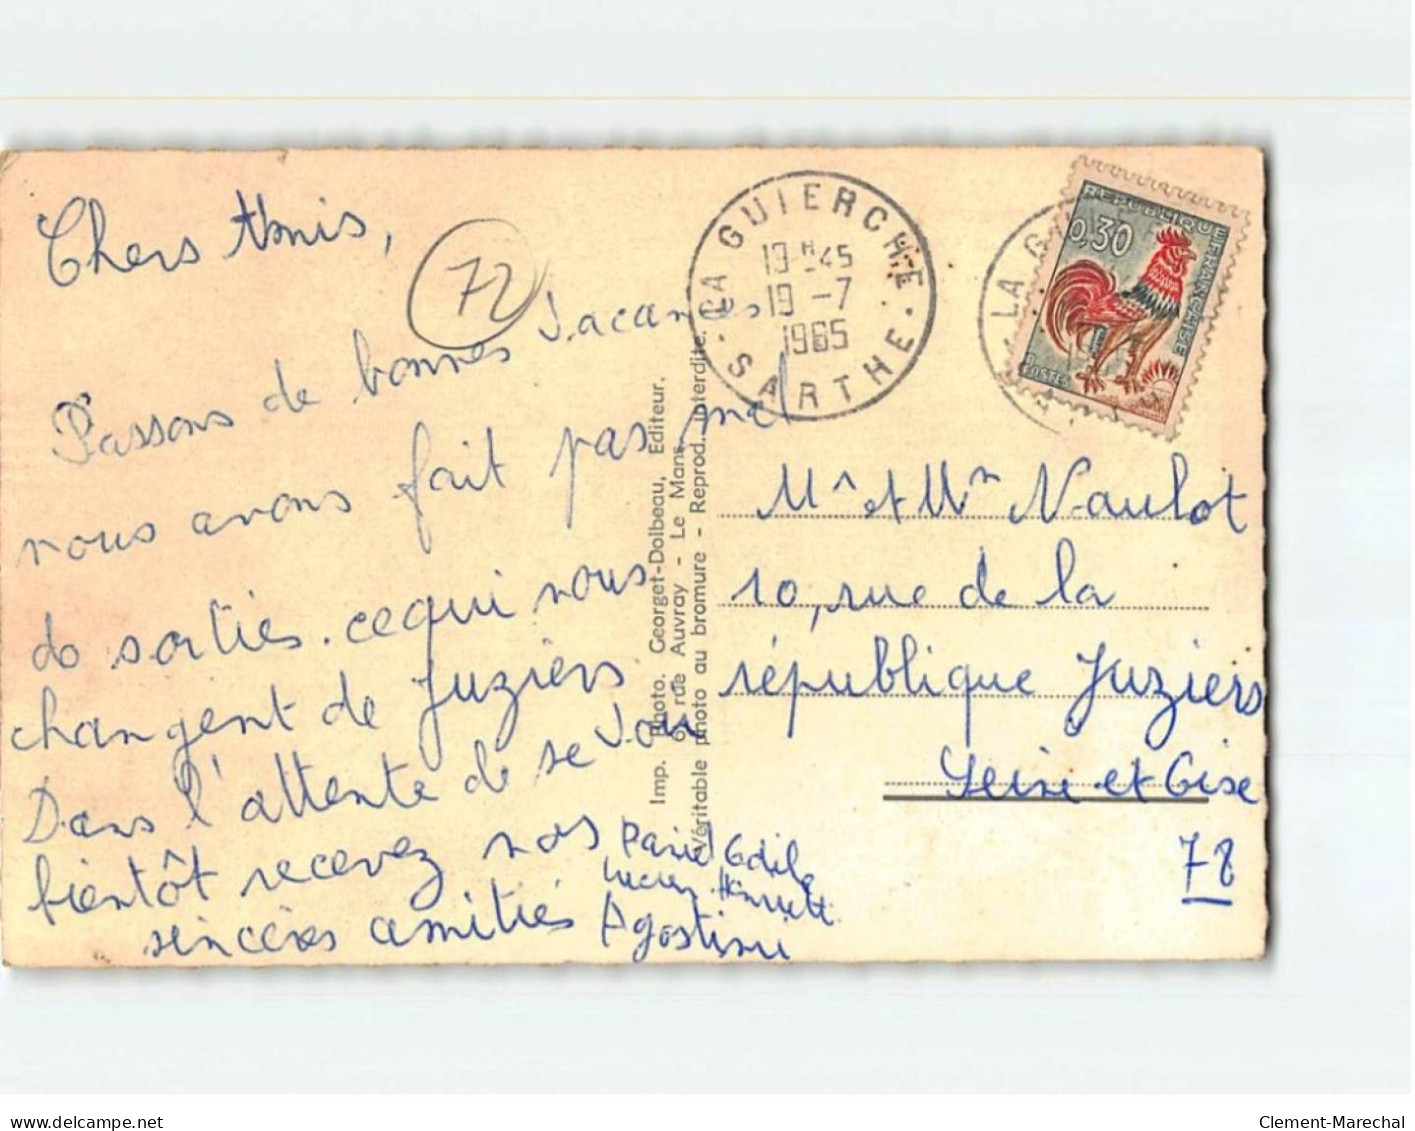 Chers Amis,
72
Passons de bonnes vacances
nous avons fait pas mal
de sorties. ce qui nous
changent de Juziers.
Dans l'attente de se voir
bientôt recevez nos
sincères amitiés
Odile
Lucien
Agostini
Imp. Photo. Georget-Dolbeau, Editeur.
6, rue Auvray - Le Mans.
Véritable photo au bromure - Reprod. interdite.
LA GUIERCHE
19 H 45
19 - 7
1965
SARTHE
LA G
REPUBLIQUE FRANÇAISE
0,30
POSTES
Mr et Mm Naulot
10, rue de la
république Juziers
Seine et Oise
78
delcampe.net
Clement-Marechal